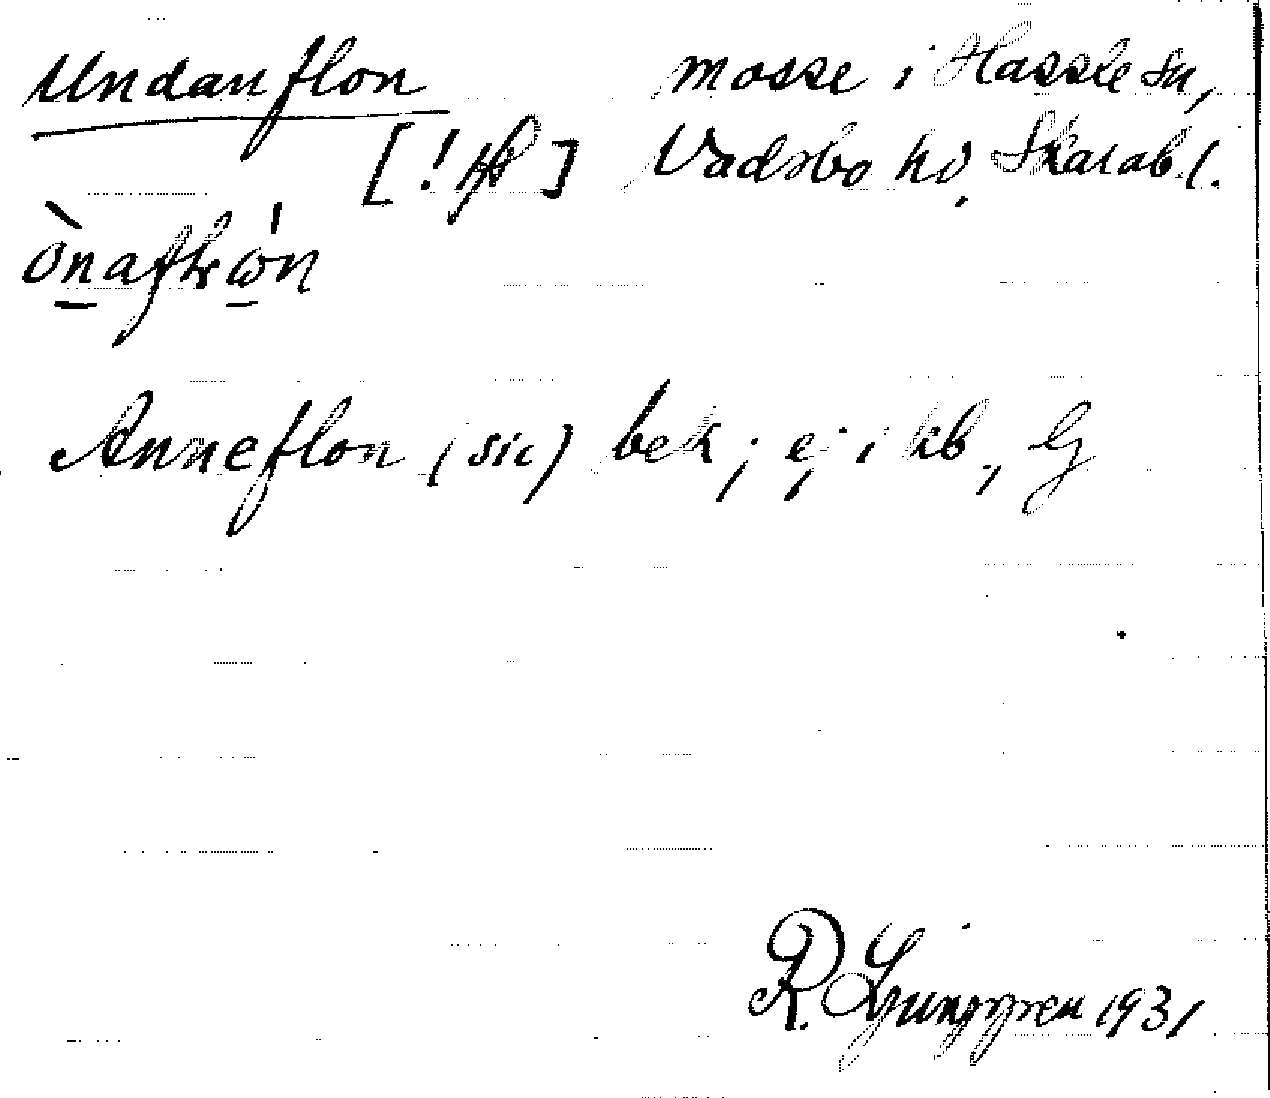 Undanflon mosse i Hassle sn,
[!] Vadsbo hd, Skarab. l.
Anneflon (sic) bek; ej i kb, G
R. Ljunggren 1931